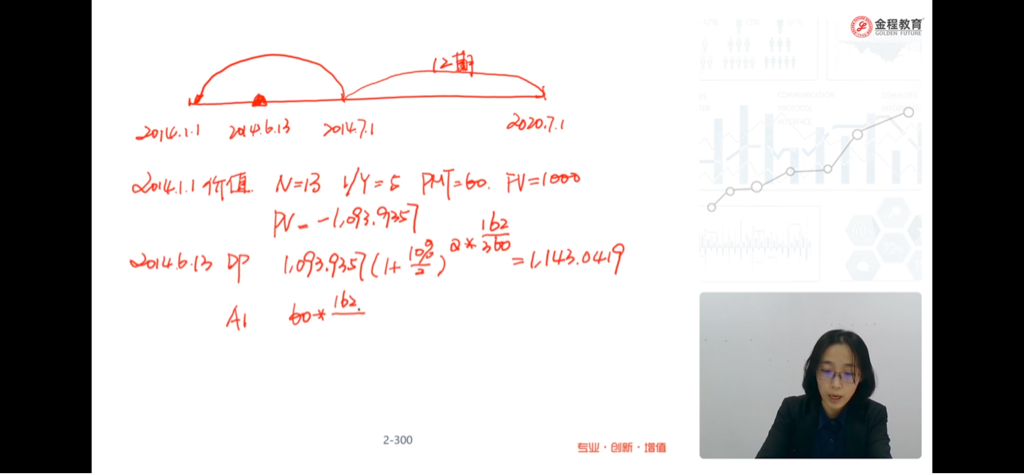 金程教育
GOLDEN FUTURE
12期
2014.1.1 2014.6.13 2014.7.1 2020.7.1
2014.1.1 价值 N=13 I/Y=5 PMT=60. FV=1000
PV=-1,093.9357
2014.6.13 DP 1,093.9357(1+10%/2)^2*162/360=1,143.0419
AI 60*162
2-300
专业·创新·增值